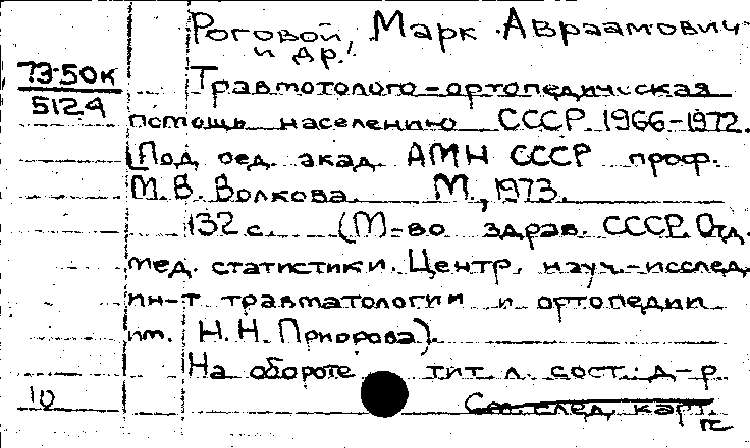 Роговой, Марк Авраамович
и др.
73-50к
5124
Травмотолого-ортопедическая
помощь населению СССР. 1966-1972.
[Под ред. акад. АМН СССР проф.
М.В. Волкова. М., 1973.
132 с. (М-во здрав. СССР. Отд.
мед. статистики. Центр. науч.-исслед.
ин-т травматологии и ортопедии
им. Н.Н. Приорова).
На обороте тит. л. сост.: д-р
10
См. след. карт.